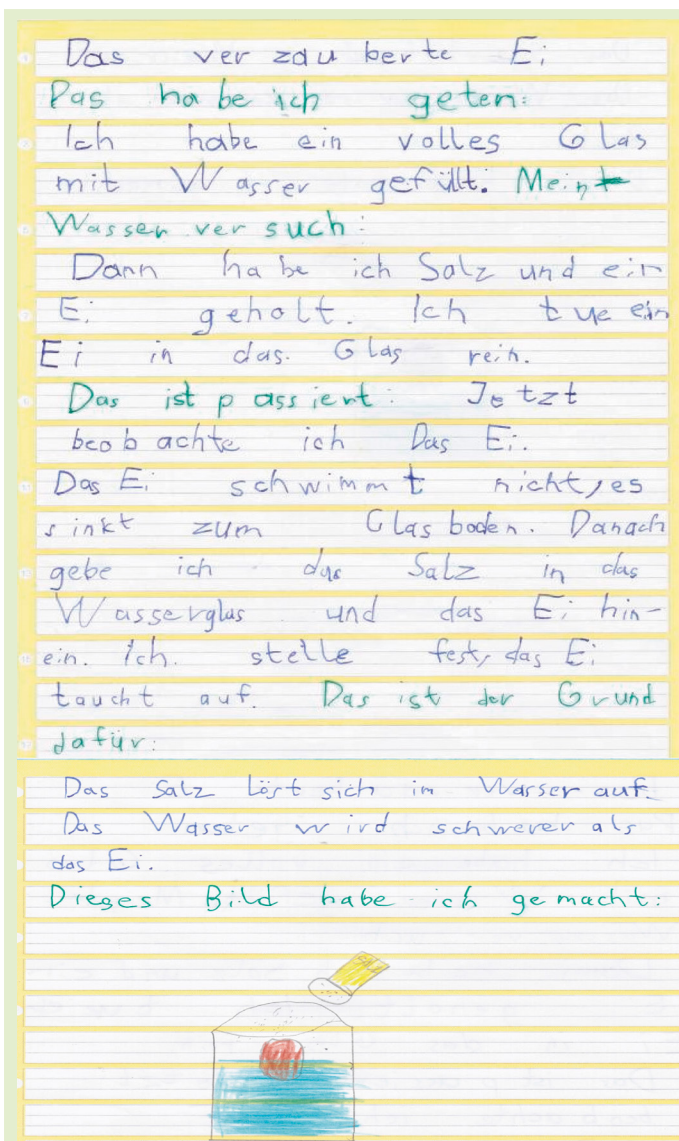 Das verzauberte Ei
Das habe ich geten:
Ich habe ein volles Glas
mit Wasser gefüllt. Mein
Wasser versuch:
Dann habe ich Salz und ein
Ei geholt. Ich tue ein
Ei in das. Glas rein.
Das ist passiert: Jetzt
beobachte ich Das Ei.
Das Ei schwimmt nicht, es
sinkt zum Glasboden. Danach
gebe ich das Salz in das
Wasserglas und das Ei hin-
ein. Ich. stelle fest, das Ei
taucht auf. Das ist der Grund
dafür:
Das Salz löst sich im Wasser auf.
Das Wasser wird schwerer als
das Ei.
Dieses Bild habe ich gemacht: